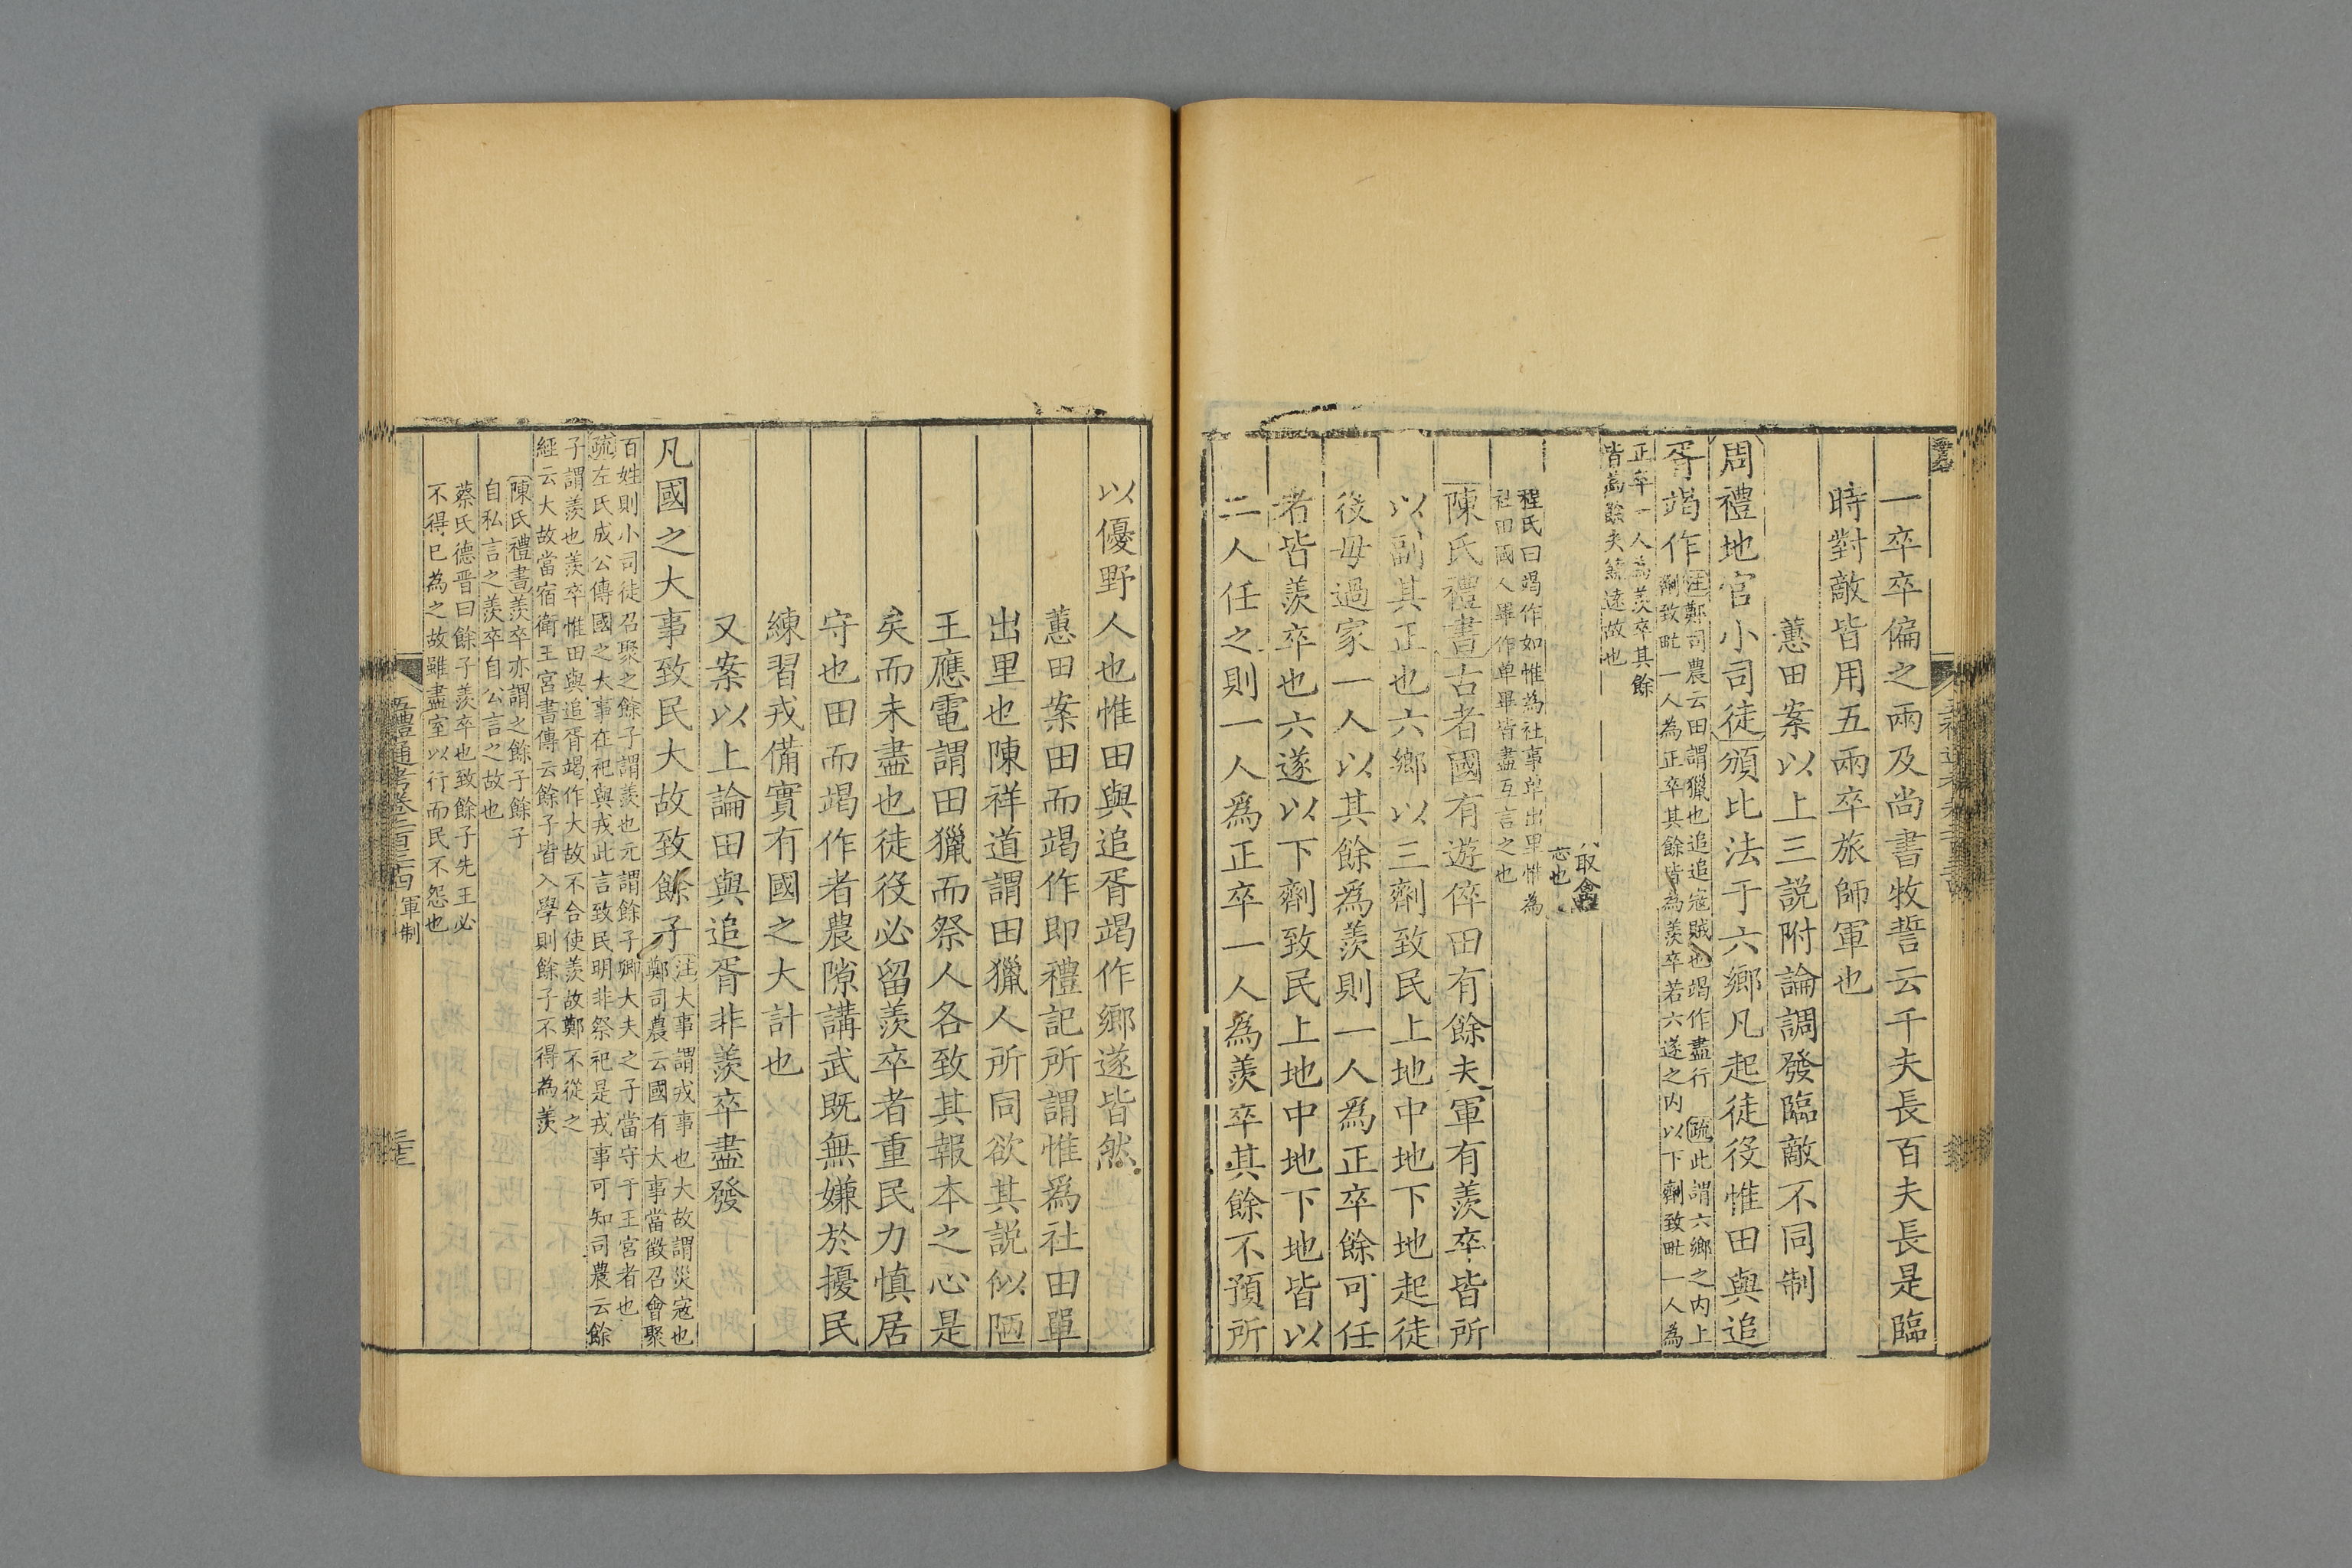 一卒卒偏之兩及尚書牧誓云千夫長百夫長是臨
時對敵皆用五兩卒旅師軍也
蕙田案以上三説附論調發臨敵不同制
周禮地官小司徒頒比法于六鄉凡起徒役惟田與追
胥竭作
注鄭司農云田謂獵也追追寇賊也竭作盡行 疏此謂六鄉之內上
劑致甿一人為正卒其餘皆為羨卒若六遂之內以下劑致甿一人為
正卒一人為羨卒其餘
皆為餘夫饒遠故也
取禽
忒也
程氏曰竭作如惟為社事单出里惟為
社田國人畢作单畢皆盡互言之也
陳氏禮書古者國有遊倅田有餘夫軍有羨卒皆所
以副其正也六鄉以三劑致民上地中地下地起徒
役毋過家一人以其餘爲羨則一人爲正卒餘可任
者皆羨卒也六遂以下劑致民上地中地下地皆以
二人任之則一人爲正卒一人為羨卒其餘不預所
以優野人也惟田與追胥竭作鄉遂皆然
蕙田案田而竭作即禮記所謂惟爲社田單
出里也陳祥道謂田獵人所同欲其説似陋
王應電謂田獵而祭人各致其報本之心是
矣而未盡也徒役必留羨卒者重民力慎居
守也田而竭作者農隙講武既無嫌於擾民
練習戎備實有國之大計也
又案以上論田與追胥非羨卒盡發
凡國之大事致民大故致餘子
注大事謂戎事也大故謂災寇也
鄭司農云國有大事當徵召會聚
百姓則小司徒召聚之餘子謂羨也元謂餘子卿大夫之子當守于王宮者也
疏左氏成公傳國之大事在祀與戎此言致民明非祭祀是戎事可知司農云餘
子謂羨也羨卒惟田與追胥竭作大故不合使羨故鄭不從之
經云大故當宿衛王宮書傳云餘子皆入學則餘子不得為羨
陳氏禮書羨卒亦謂之餘子餘子
自私言之羨卒自公言之故也
蔡氏德晋曰餘子羨卒也致餘子先王必
不得已為之故雖盡室以行而民不怨也
五禮通考卷二百三十四 軍制